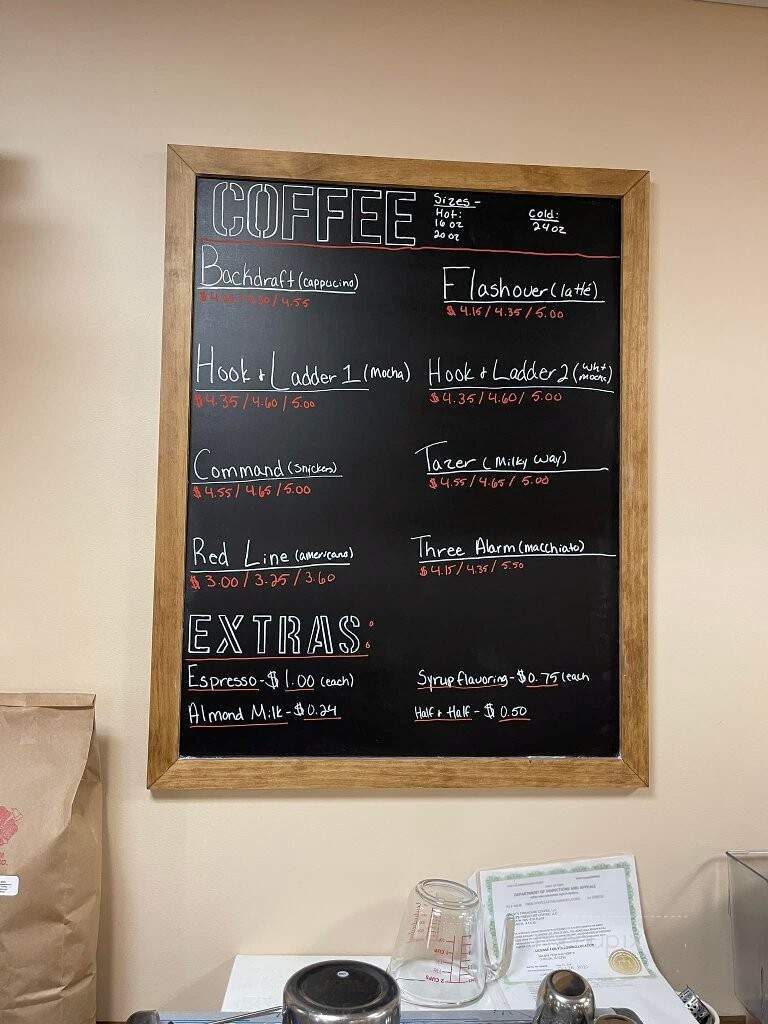 COFFEE
Sizes -
Hot:
16 oz
20 oz
Cold:
24 oz
Backdraft (cappucino)
/ 4.55
Flashover (latté)
$ 4.15 / 4.35 / 5.00
Hook & Ladder 1 (mocha)
$ 4.35 / 4.60 / 5.00
Hook & Ladder 2 (wht mocha)
$ 4.35 / 4.60 / 5.00
Command (snickers)
$ 4.55 / 4.65 / 5.00
Tazer (Milky Way)
$ 4.55 / 4.65 / 5.00
Red Line (americano)
$ 3.00 / 3.25 / 3.60
Three Alarm (macchiato)
$ 4.15 / 4.35 / 5.50
EXTRAS:
Espresso - $ 1.00 (each)
Syrup flavoring - $0.75 (each
Almond Milk - $0.24
Half & Half - $ 0.50
DEPARTMENT OF INSPECTIONS AND APPEALS
1 CUP
2 CUPS